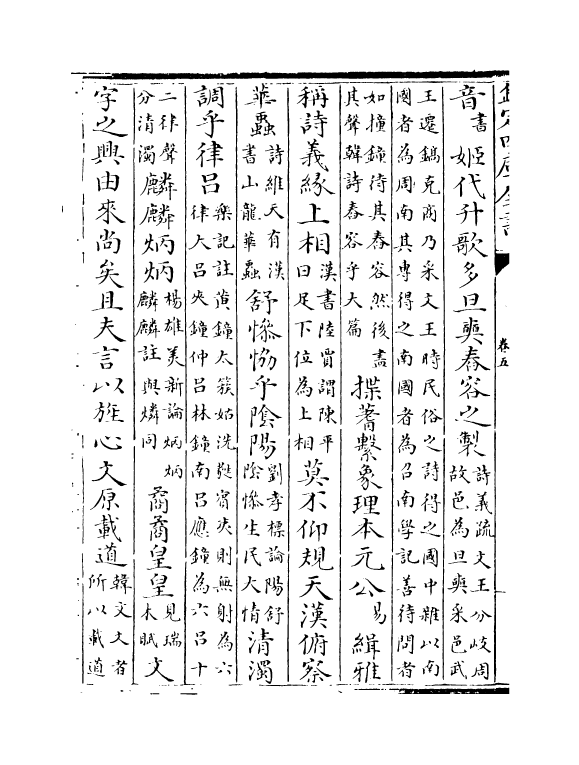 欽定四庫全書
卷五
音書姬代升歌多旦奭舂容之製詩義疏文王分岐周故邑為旦奭采邑武
王遷鎬克商乃采文王時民俗之詩得之國中雜以南國者為周南其專得之南國者為召南學記善待問者
如撞鐘待其舂容然後盡其聲韓詩舂容乎大篇揲蓍繫象理本元公易緝雅
稱詩義緣上相漢書陸賈謂陳平曰足下位為上相莫不仰規天漢俯察
華蟲詩維天有漢書山龍華蟲舒慘協乎陰陽劉孝標論陽舒陰慘生民大情清濁
調乎律呂樂記註黃鐘太簇姑洗蕤賓夷則無射為六律大呂夾鐘仲呂林鐘南呂應鐘為六呂十
二律聲分清濁麟麟炳炳楊雄美新論炳炳麟麟註與燐同裔裔皇皇見瑞木賦文
字之興由來尚矣且夫言以旌心文原載道韓文文者所以載道